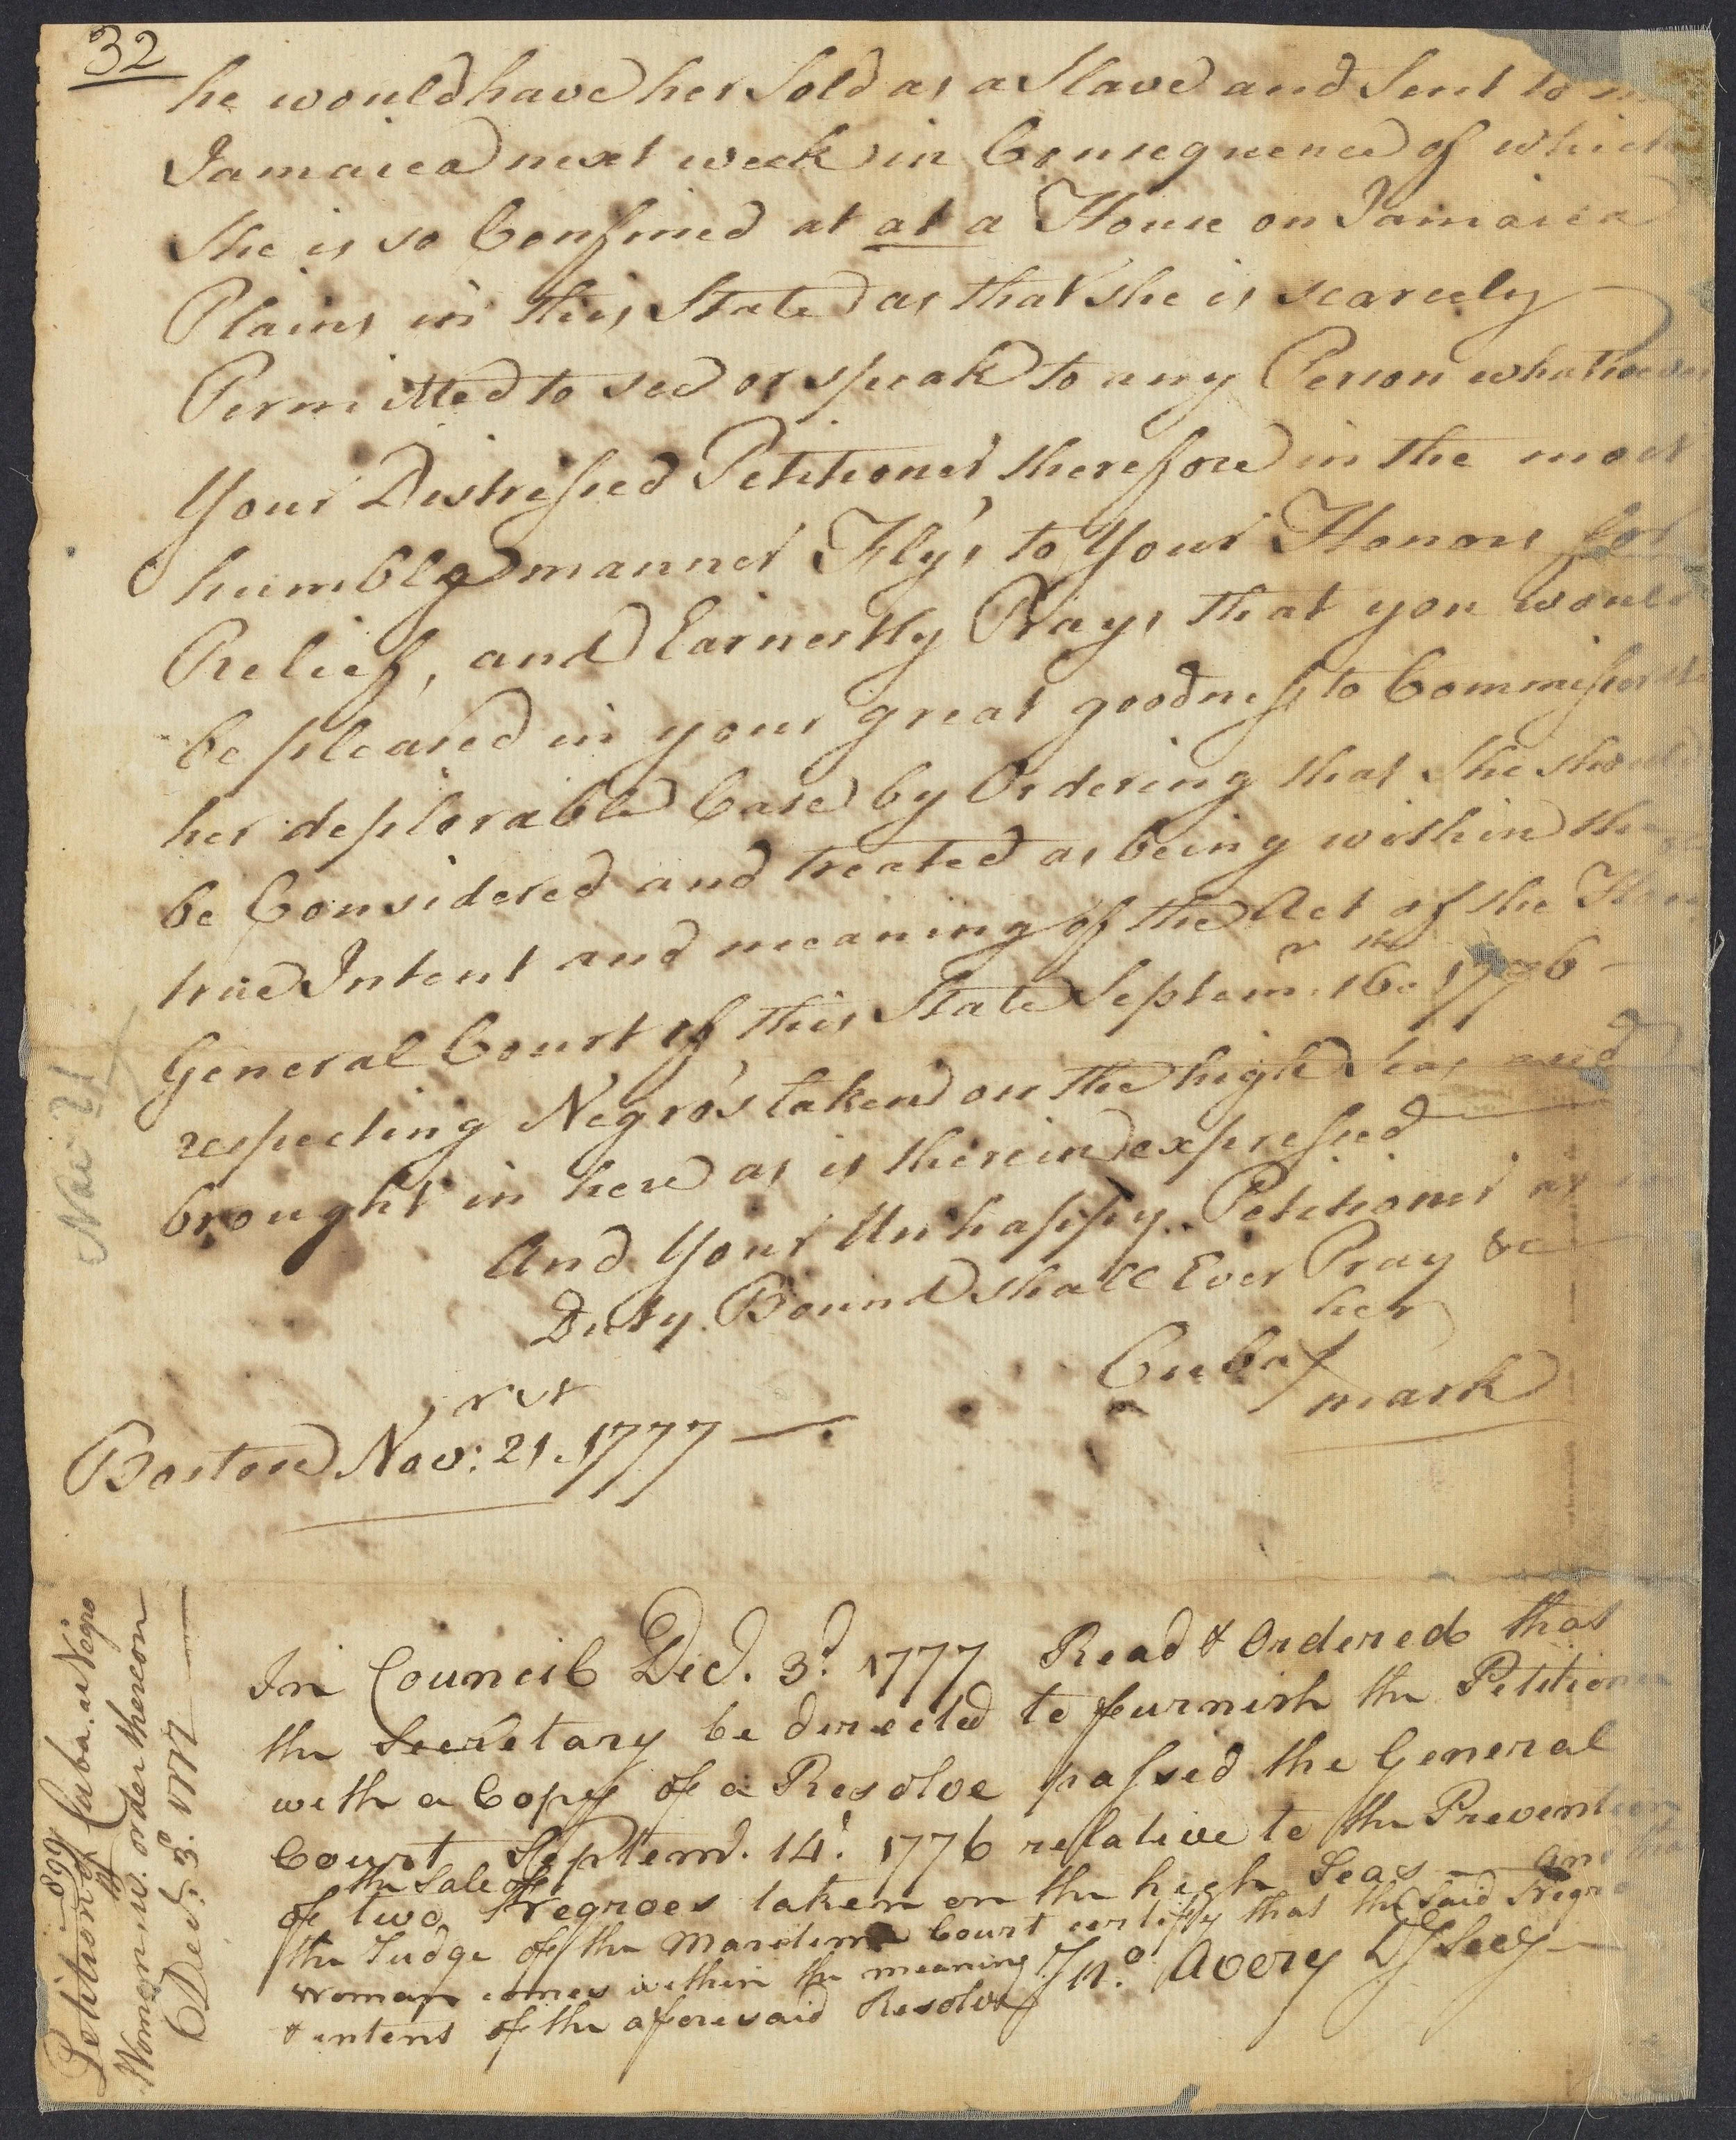 32
he would have her Sold as a Slave and Sent to
Jamaica next week in Consequence of which
She is so Confined at at a House on Jamaica
Plains in this State as that she is scarcely
Permitted to see or speak to any Person whatsoever
Your Distressed Petitioner therefore in the most
humble manner Fly's to Your Honors for
Relief, and Earnestly Prays that you would
be pleased in your great goodness to Commisserate
her deplorable Case by Ordering that She should
be Considered and treated as being within the
true Intent and meaning of the Act of the Hon
General Court of this State Septemr. 16th 1776
respecting Negro's taken on the high Seas and
brought in here as is therein expressed
And Your Unhappy Petitioner as in
Duty Bound shall Ever Pray &c
her
Cuba X
mark
Boston Novr: 21st 1777
Nov 21
In Council Decr. 3d. 1777 Read & Ordered that
the Secretary be directed to furnish the Petitioner
with a Copy of a Resolve passed the General
Court Septemr. 14th. 1776 relative to the Prevention
of the Sale of two Negroes taken on the high Seas and
the Judge of the Maritime Court certify that the said Negro
Woman comes within the meaning
& intent of the aforesaid Resolve
Jno. Avery Dy Secy
899
Petition of Cuba. a Negro
Woman w. order thereon
Decr. 3d. 1777